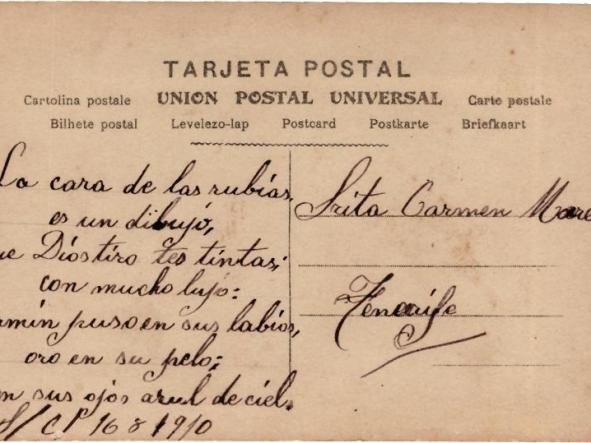 TARJETA POSTAL
Cartolina postale UNION POSTAL UNIVERSAL Carte postale
Bilhete postal Levelezo-lap Postcard Postkarte Briefkaart
La cara de las rubias,
es un dibujó,
ue Dios tiro tes tintasi
con mucho lujo:
rmin puso en sus labios,
oro en su pelo;
en sus ojos azul de ciel.
S/C P 16 8 1910
Srita Carmen More
Tenerife